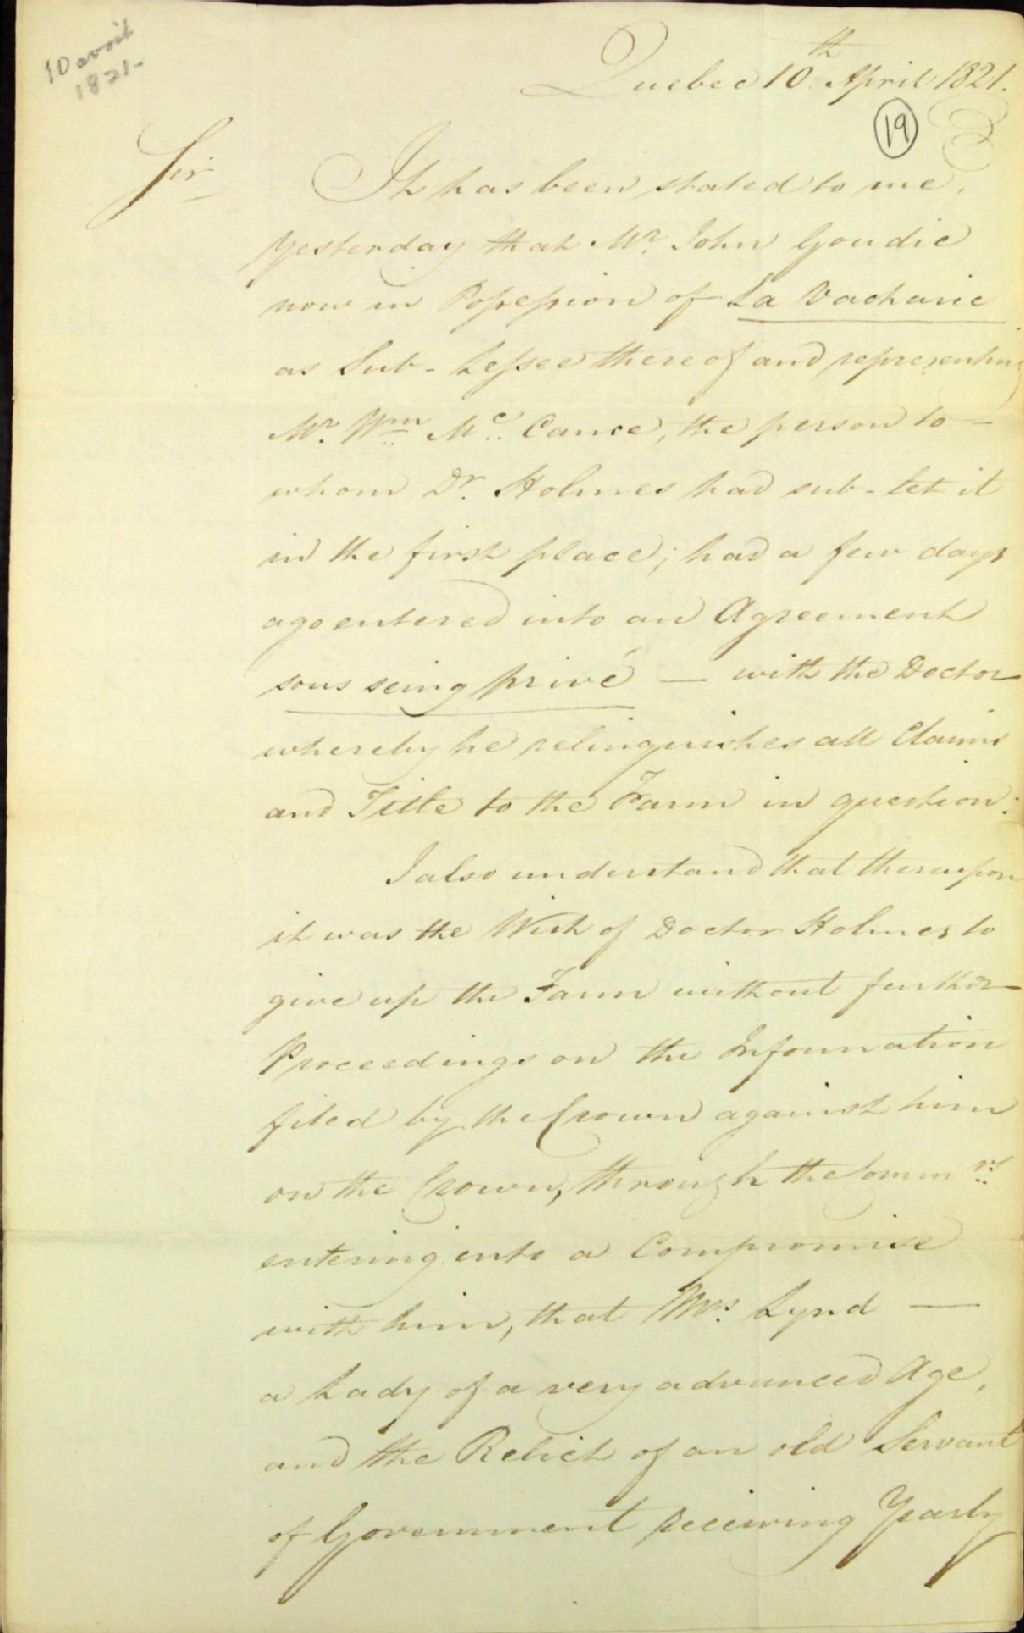 10 avril
1821-
Quebec 10th April 1821.
19
Sir
It has been stated to me,
Yesterday that Mr. John Goudie
now in Possession of La Vacharie
as Sub-Lessee thereof and representing
Mr. Wm. Mc. Cance, the person to -
whom Dr. Holmes had sub-let it
in the first place; had a few days
ago entered into an Agreement
sous seing privé — with the Doctor
whereby he relinquishes all Claims
and Title to the Farm in question.
I also understand that thereupon
it was the Wish of Doctor Holmes to
give up the Farm without further
Proceedings on the Information
filed by the Crown against him
on the Crown, through the Commrs.
entering into a Compromise
with him, that Mrs. Lynd —
a Lady of a very advanced Age,
and the Relict of an old Servant
of Government receiving Yearly